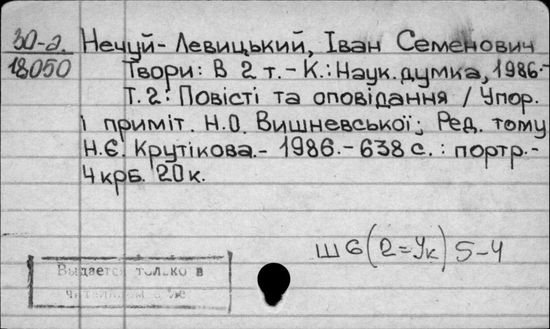 30-а. Нечуй-Левицький, Іван Семенович
18050 Твори: В 2 т.-К.:Наук.думка,1986.-
Т.2: Повісті та оповідання / Упор.
і приміт. Н.О. Вишневської; Ред. тому
Н.Є. Крутікова.- 1986.-638 с.: портр.-
4крб. 20к.
Ш6(2=Ук) 5-4
Выдается только в